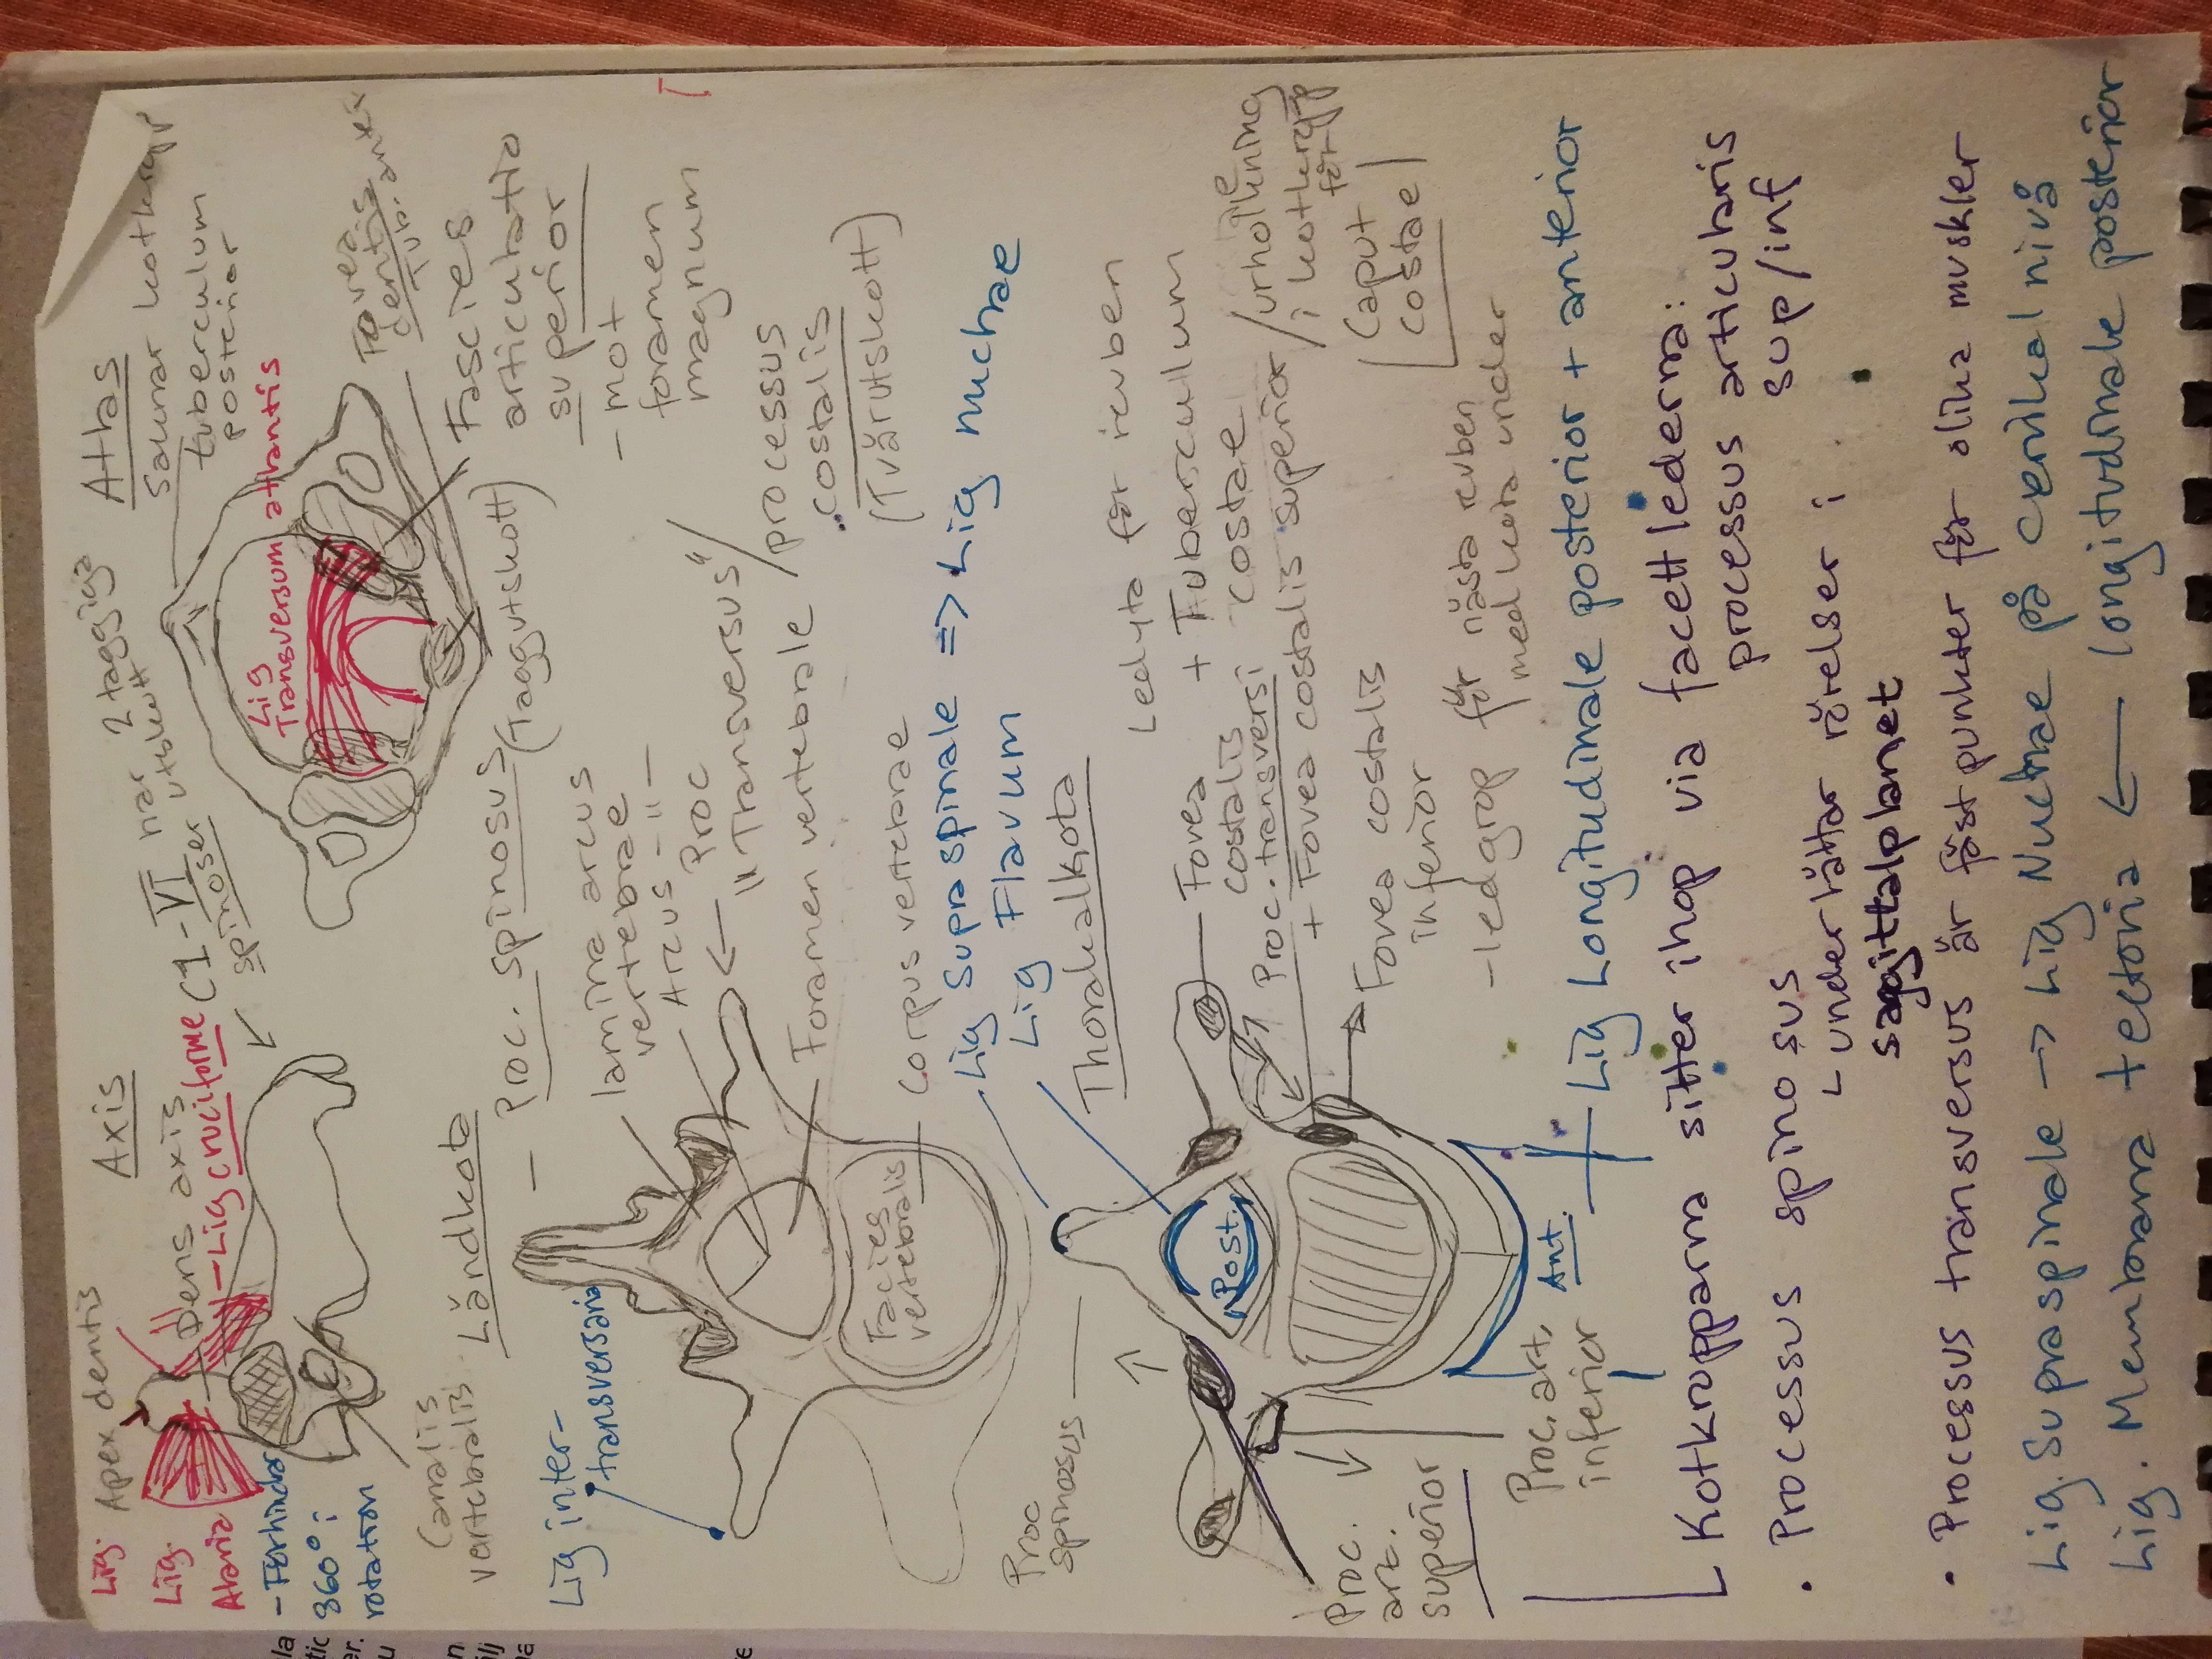 Axis
Atlas
Lig. Apex dentis
Dens axis
Lig.
Alaria
- Lig cruciforme
- Förhindar
360° i
rotation
C1-VI har 2 taggiga
utskott
spinoser
Saknar kotkropp
tuberculum
posterior
Lig
Transversum atlantis
Fovea
dentis
Fascies
articulatio
superior
- mot
foramen
magnum
Canalis
vertebralis
Ländkota
- Proc. spinosus
(Taggutskott)
lamina arcus
vertebrae
Arcus -"-
Proc
"Transversus"/
processus
costalis
(Tvärutskott)
Foramen vertebrale
Corpus vertebrae
Facies
vertebralis
Lig inter-
transversaria
Lig Supraspinale => Lig nuchae
Lig Flavum
Thorakalkota
Proc
spinosus
Ledyta för revben
Fovea
costalis
Proc. transversi
+ Tuberculum
costae
+ Fovea costalis superior /urholkning
i kotkropp
för
Caput
costae
Fovea costalis
inferior
- ledgrop för nästa revben
med kota under
Post.
Ant.
Proc.
art.
superior
Proc. art.
inferior
Lig Longitudinale posterior + anterior
Kotkropparna sitter ihop via facettlederna:
processus articularis
sup/inf
• Processus spinosus
underlättar rörelser i
sagittalplanet
• Processus transversus är fästpunkter för olika muskler
Lig. Supraspinale → Lig Nuchae på cervikal nivå
Lig. Membrana tectoria ← longitudinale posterior